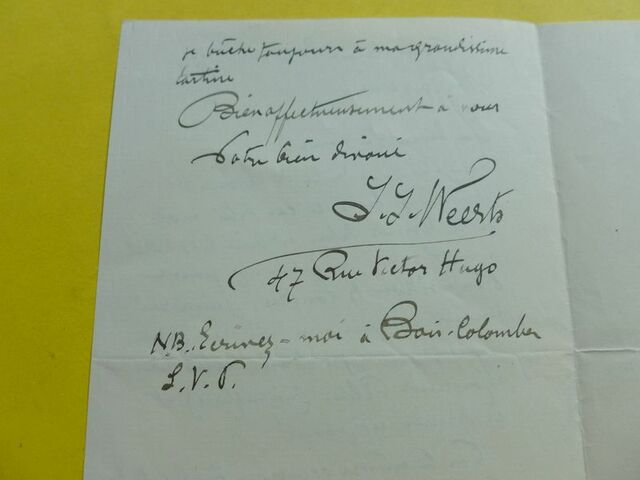 je bûche toujours à ma grandissime
tartine
Bien affectueusement à vous
Votre bien dévoué
J. J. Weerts
47 Rue Victor Hugo
N.B. Ecrivez-moi à Bois-Colombes
S.V.P.